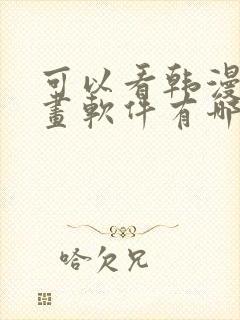 可以看韩漫
畫軟件有哪
哈欠兄